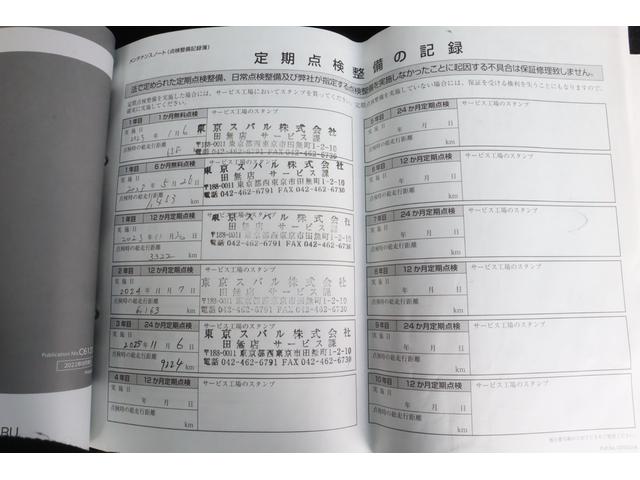 メンテナンスノート（点検整備記録簿）
定期点検整備の記録
法で定められた定期点検整備、日常点検整備及び弊社が指定する点検整備を実施しなかったことに起因する不具合は保証修理致しません。
定期点検整備を実施した場合には、サービス工場においてスタンプを貰ってください。
確実に実施してください。
1年目 1か月無料点検 サービス工場のスタンプ
実施日 2023年 1月 6
点検時の総走行距離
東京スバル株式会社
田無店 サービス課
〒188-0011 東京都西東京市田無町1-2-10
電話 042-462-6791 FAX 042-462-6730
1年目 6か月無料点検 サービス工場のスタンプ
実施日 5月
点検時の総走行距離 km
東京スバル株式会社
田無店 サービス課
〒188-0011 東京都西東京市田無町1-2-10
電話 042-462-6791 FAX 042-462-6730
1年目 12か月定期点検 サービス工場のスタンプ
実施日 2023年 11月 日
点検時の総走行距離
3322 km
東京スバル株式会社
田無店 サービス課
〒188-0011 東京都西東京市田無町1-2-10
電話 042-462-6791 FAX 042-462-6730
2年目 12か月定期点検 サービス工場のスタンプ
実施日 2024年 11月 7日
点検時の総走行距離
6,163 km
東京スバル株式会社
田無店 サービス課
〒188-0011 東京都西東京市田無町1-2-10
電話 042-462-6791 FAX 042-462-6730
3年目 24か月定期点検 サービス工場のスタンプ
実施日 2025年 11月 6日
点検時の総走行距離
9224 km
東京スバル株式会社
田無店 サービス課
〒188-0011 東京都西東京市田無町1-2-10
電話 042-462-6791 FAX 042-462-6730
4年目 12か月定期点検 サービス工場のスタンプ
実施日 年 月 日
点検時の総走行距離
km
24か月定期点検 サービス工場のスタンプ
年 月 日
点検時の総走行距離
km
12か月定期点検 サービス工場のスタンプ
実施日 年 月 日
点検時の総走行距離
km
7年目 24か月定期点検 サービス工場のスタンプ
実施日 年 月 日
点検時の総走行距離
km
12か月定期点検 サービス工場のスタンプ
実施日 年 月 日
点検時の総走行距離
km
9年目 24か月定期点検 サービス工場のスタンプ
実施日 年 月 日
点検時の総走行距離
km
10年目 12か月定期点検 サービス工場のスタンプ
実施日 年 月 日
点検時の総走行距離
km
Publication No.